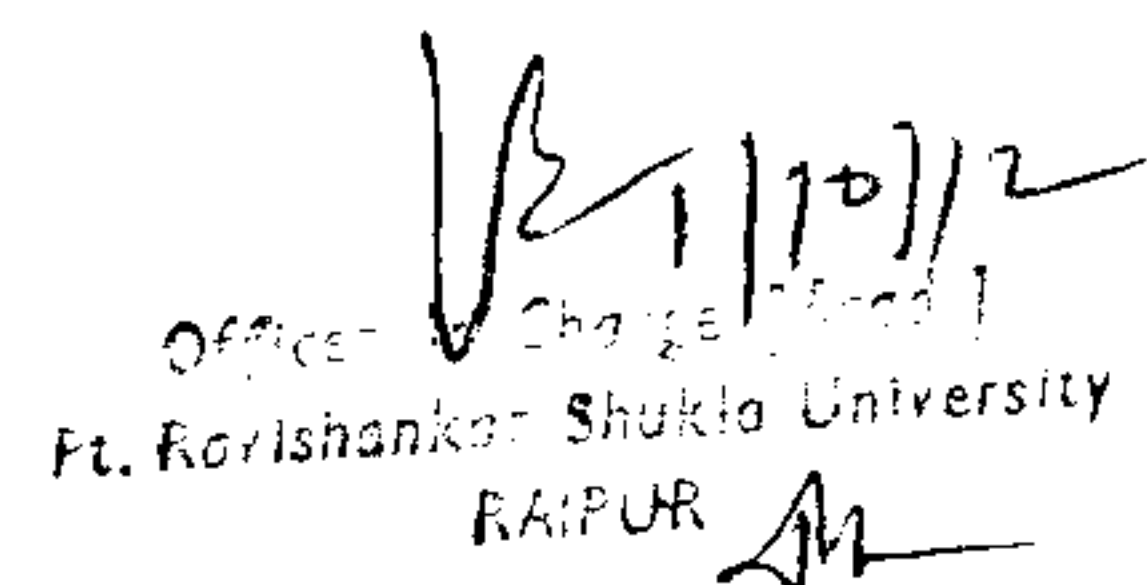 1/10/12
Officer in Charge
Pt. Ravishankar Shukla University
RAIPUR